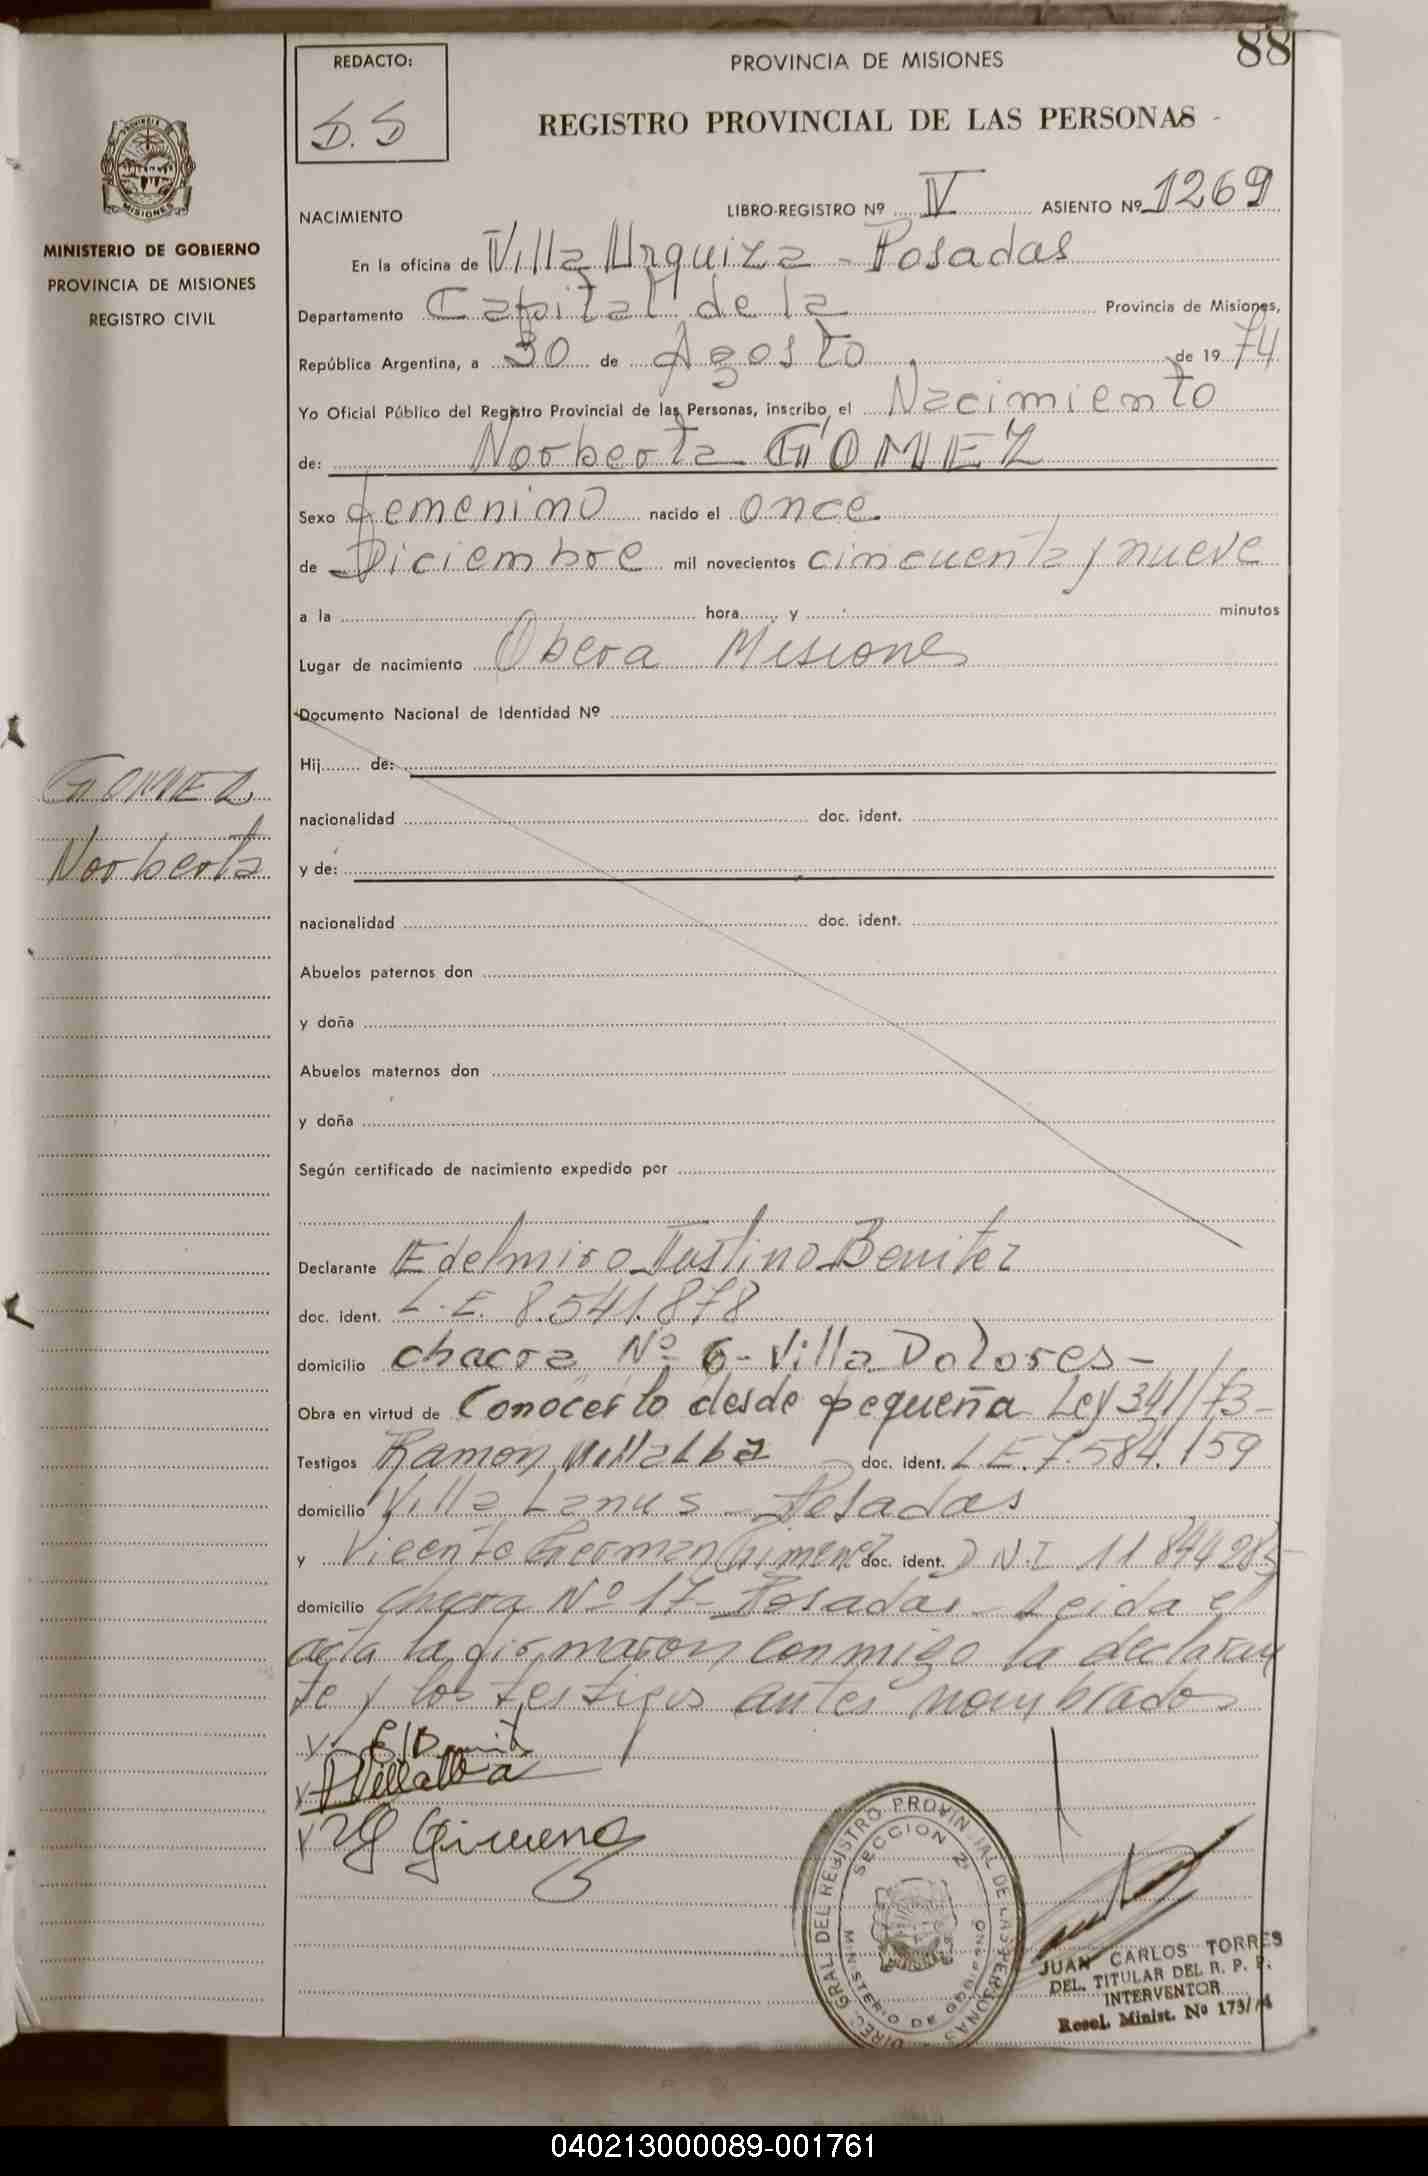 88
REDACTO:
D.D
PROVINCIA DE MISIONES
REGISTRO PROVINCIAL DE LAS PERSONAS
MINISTERIO DE GOBIERNO
PROVINCIA DE MISIONES
REGISTRO CIVIL
NACIMIENTO LIBRO-REGISTRO Nº IV ASIENTO Nº 1269
En la oficina de Villa Urquiza - Posadas
Departamento Capital de la Provincia de Misiones,
República Argentina, a 30 de Agosto de 1974
Yo Oficial Público del Registro Provincial de las Personas, inscribo el Nacimiento
de: Norberta GOMEZ
Sexo femenino nacido el once
de Diciembre mil novecientos cincuenta y nueve
a la hora y minutos
Lugar de nacimiento Obera Misiones
Documento Nacional de Identidad Nº
Hij de:
GOMEZ
Norberta
nacionalidad doc. ident.
y de:
nacionalidad doc. ident.
Abuelos paternos don
y doña
Abuelos maternos don
y doña
Según certificado de nacimiento expedido por
Declarante Edelmiro Justino Benitez
doc. ident. L.E. 8.541.878
domicilio chacra Nº 6 - Villa Dolores -
Obra en virtud de Conocerlo desde pequeña Ley 341/73-
Testigos Ramon Villalba doc. ident. L.E. 7.584.159
domicilio Villa Lanus - Posadas
y Vicente German Gimenez doc. ident. D.N.I 11 844
domicilio chacra Nº 17 - Posadas - Leida el
acta la firmaron conmigo la declaran
te y los testigos antes nombrados
Villalba
Gimenez
DIREC. GRAL. DEL REGISTRO PROVINCIAL DE LAS PERSONAS
SECCION 2ª
MINISTERIO DE GOBIERNO
JUAN CARLOS TORRES
DEL. TITULAR DEL R. P. P.
INTERVENTOR
Resol. Minist. Nº 173/74
040213000089-001761